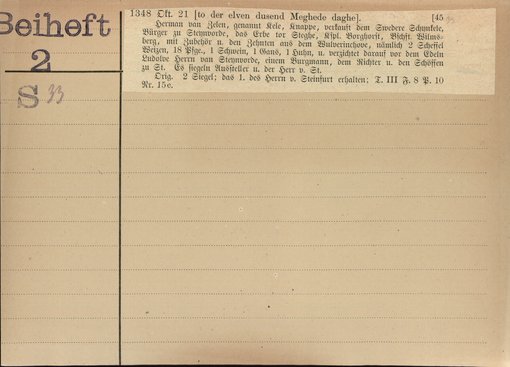 Beiheft
2
S 33
1348 Okt. 21 [to der elven dusend Meghede daghe]. [45
Herman van Zelen, genannt Kele, Knappe, verkauft dem Swedere Schynkele,
Bürger zu Steynvorde, das Erbe tor Steghe, Kspl. Borghorst, Bschft. Wilms-
berg, mit Zubehör u. den Zehnten aus dem Wulverinchove, nämlich 2 Scheffel
Weizen, 18 Pfge., 1 Schwein, 1 Gans, 1 Huhn, u. verzichtet darauf vor dem Edeln
Ludolve Herrn van Steynvorde, einem Burgmann, dem Richter u. den Schöffen
zu St. Es siegeln Aussteller u. der Herr v. St.
Orig. 2 Siegel; das 1. des Herrn v. Steinfurt erhalten; T. III F. 8 P. 10
Nr. 15e.